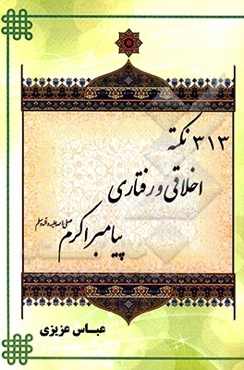 ۳۱۳ نکته
اخلاقی و رفتاری
پیامبر اکرم صلی الله علیه و آله وسلم
عباس عزیزی